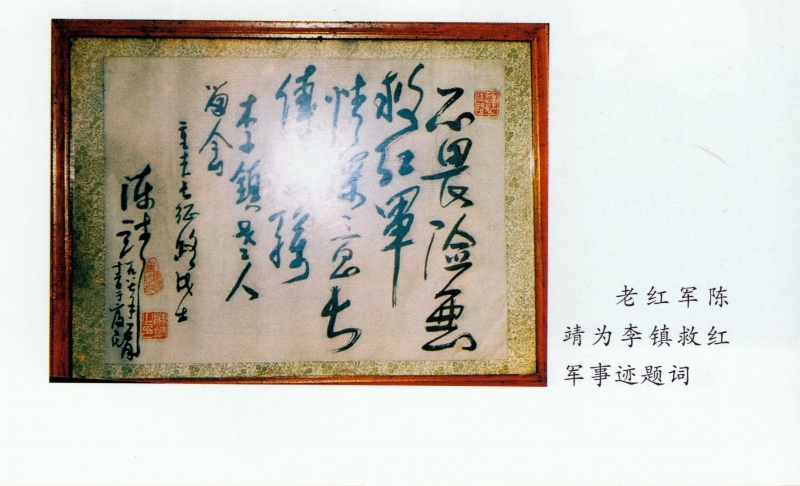 不畏险恶
救红军
情深意长
传
李镇老人
留念
重走长征路战士
陈靖
老红军陈
靖为李镇救红
军事迹题词